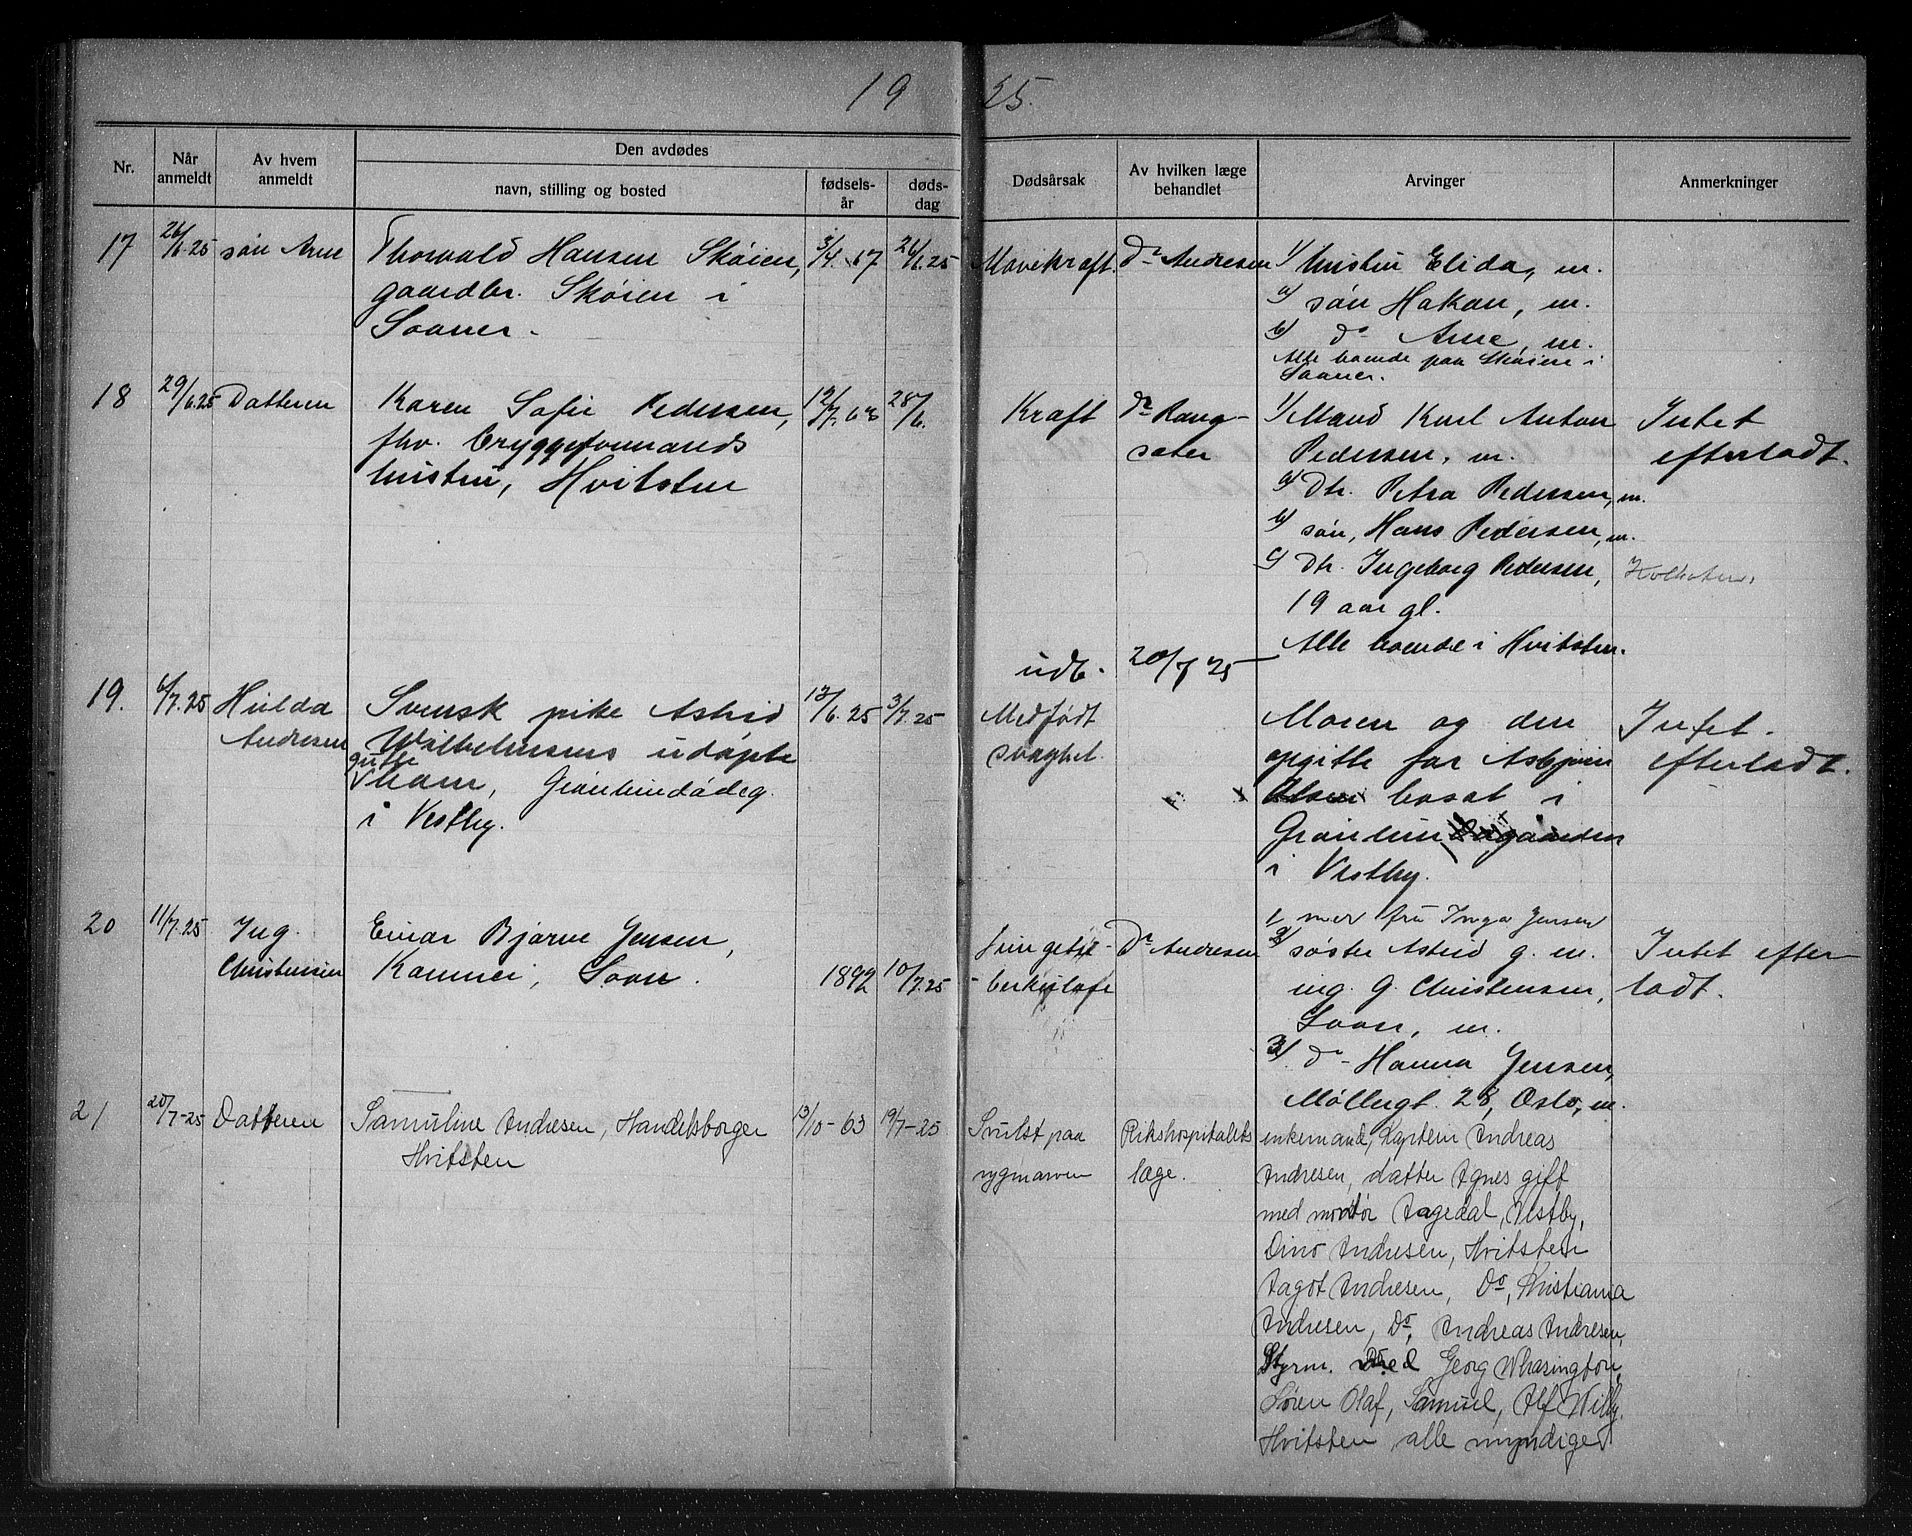 19 25.
Nr. Når anmeldt Av hvem anmeldt Den avdødes navn, stilling og bosted fødselsår dødsdag Dødsårsak Av hvilken læge behandlet Arvinger Anmerkninger
17 26/6.25 søn Arne Thorvald Hansen Skøien, 3/4. 67 26/6.25 Mavekraft. Dr Andresen 1/ hustru Elida, m.
gaardbr. Skøien i a/ søn Hakon, m.
Saaner. b/ do Arne, m.
Alle boende paa Skøien i
Saaner.
18 29/6.25 Datteren Karen Sofie Pedersen, 12/7. 63 28/6. Kraft Dr Rang- 1/ Mand Karl Anton Intet
fhv. bryggeformands sæter Pedersen, m. efterladt.
hustru, Hvitsten a/ Dtr. Petra Pedersen, m.
b/ søn, Hans Pedersen, m.
c/ Dtr. Ingeborg Pedersen,
19 aar gl.
Alle boende i Hvitsten.
udb. 20/7 25
19. 6/7.25 Hulda Svensk pike Astrid 13/6.25 3/7.25 Medfødt Moren og den Intet
Andresen Wilhelmsens udøpte svaghet opgitte far Asbjørn efterladt.
gutte
barn, Olsen bosat i
i Vestby. Grønlund
i Vestby.
20 11/7.25 Ing. Einar Bjarne Jensen, 1892 10/7.25 Lungetu- Dr Andresen 1/ mor fru Inga Jensen Intet efter
Christensen Soon. berkulose 2/ søster Astrid g. m. ladt.
ing. G. Christensen,
Soon, m.
3/ do Hanna Jensen,
Møllergt. 28, Oslo, m.
21 20/7-25 Datteren Samuline Andresen, Handelsborger 13/10-63 19/7-25 Svulst paa Rikshospitalets enkemand, Kaptein Andreas
Hvitsten rygmarven læge. Andresen, datter Agnes gift
med montør Aagedal, Vestby,
Dino Andresen, Hvitsten
Aagot Andresen, Do, Kristiania
Andresen, Do, Andreas Andresen,
Styrm. Georg Whasington,
Søren Olaf, Samuel, Alf Willy.
Hvitsten, alle myndige